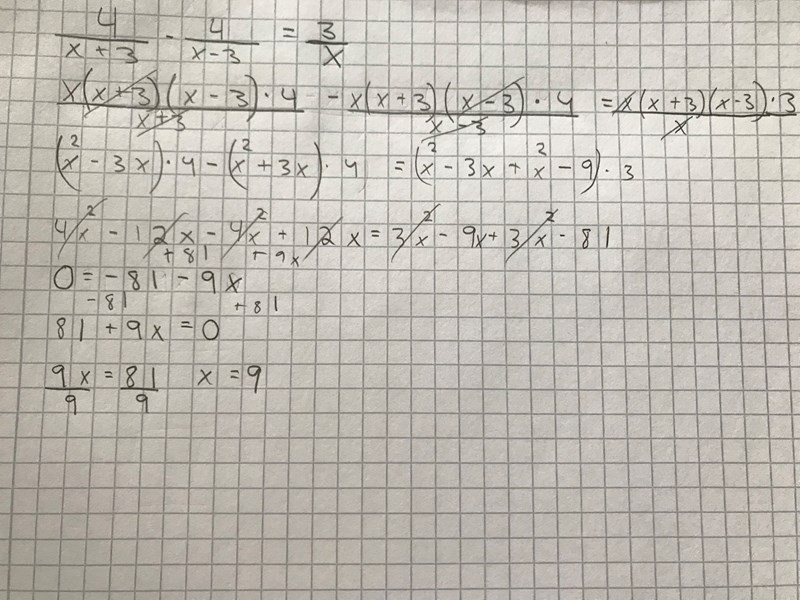 4/(x + 3) - 4/(x - 3) = 3/x
x(x + 3)(x - 3) · 4/(x + 3) - x(x + 3)(x - 3) · 4/(x - 3) = x(x + 3)(x - 3) · 3/x
(x² - 3x) · 4 - (x² + 3x) · 4 = (x² - 3x + x² - 9) · 3
4x² - 12x - 4x² + 12x = 3x² - 9x + 3x² - 81
+ 81 + 9x
0 = - 81 - 9x
- 81 + 81
81 + 9x = 0
9x/9 = 81/9 x = 9